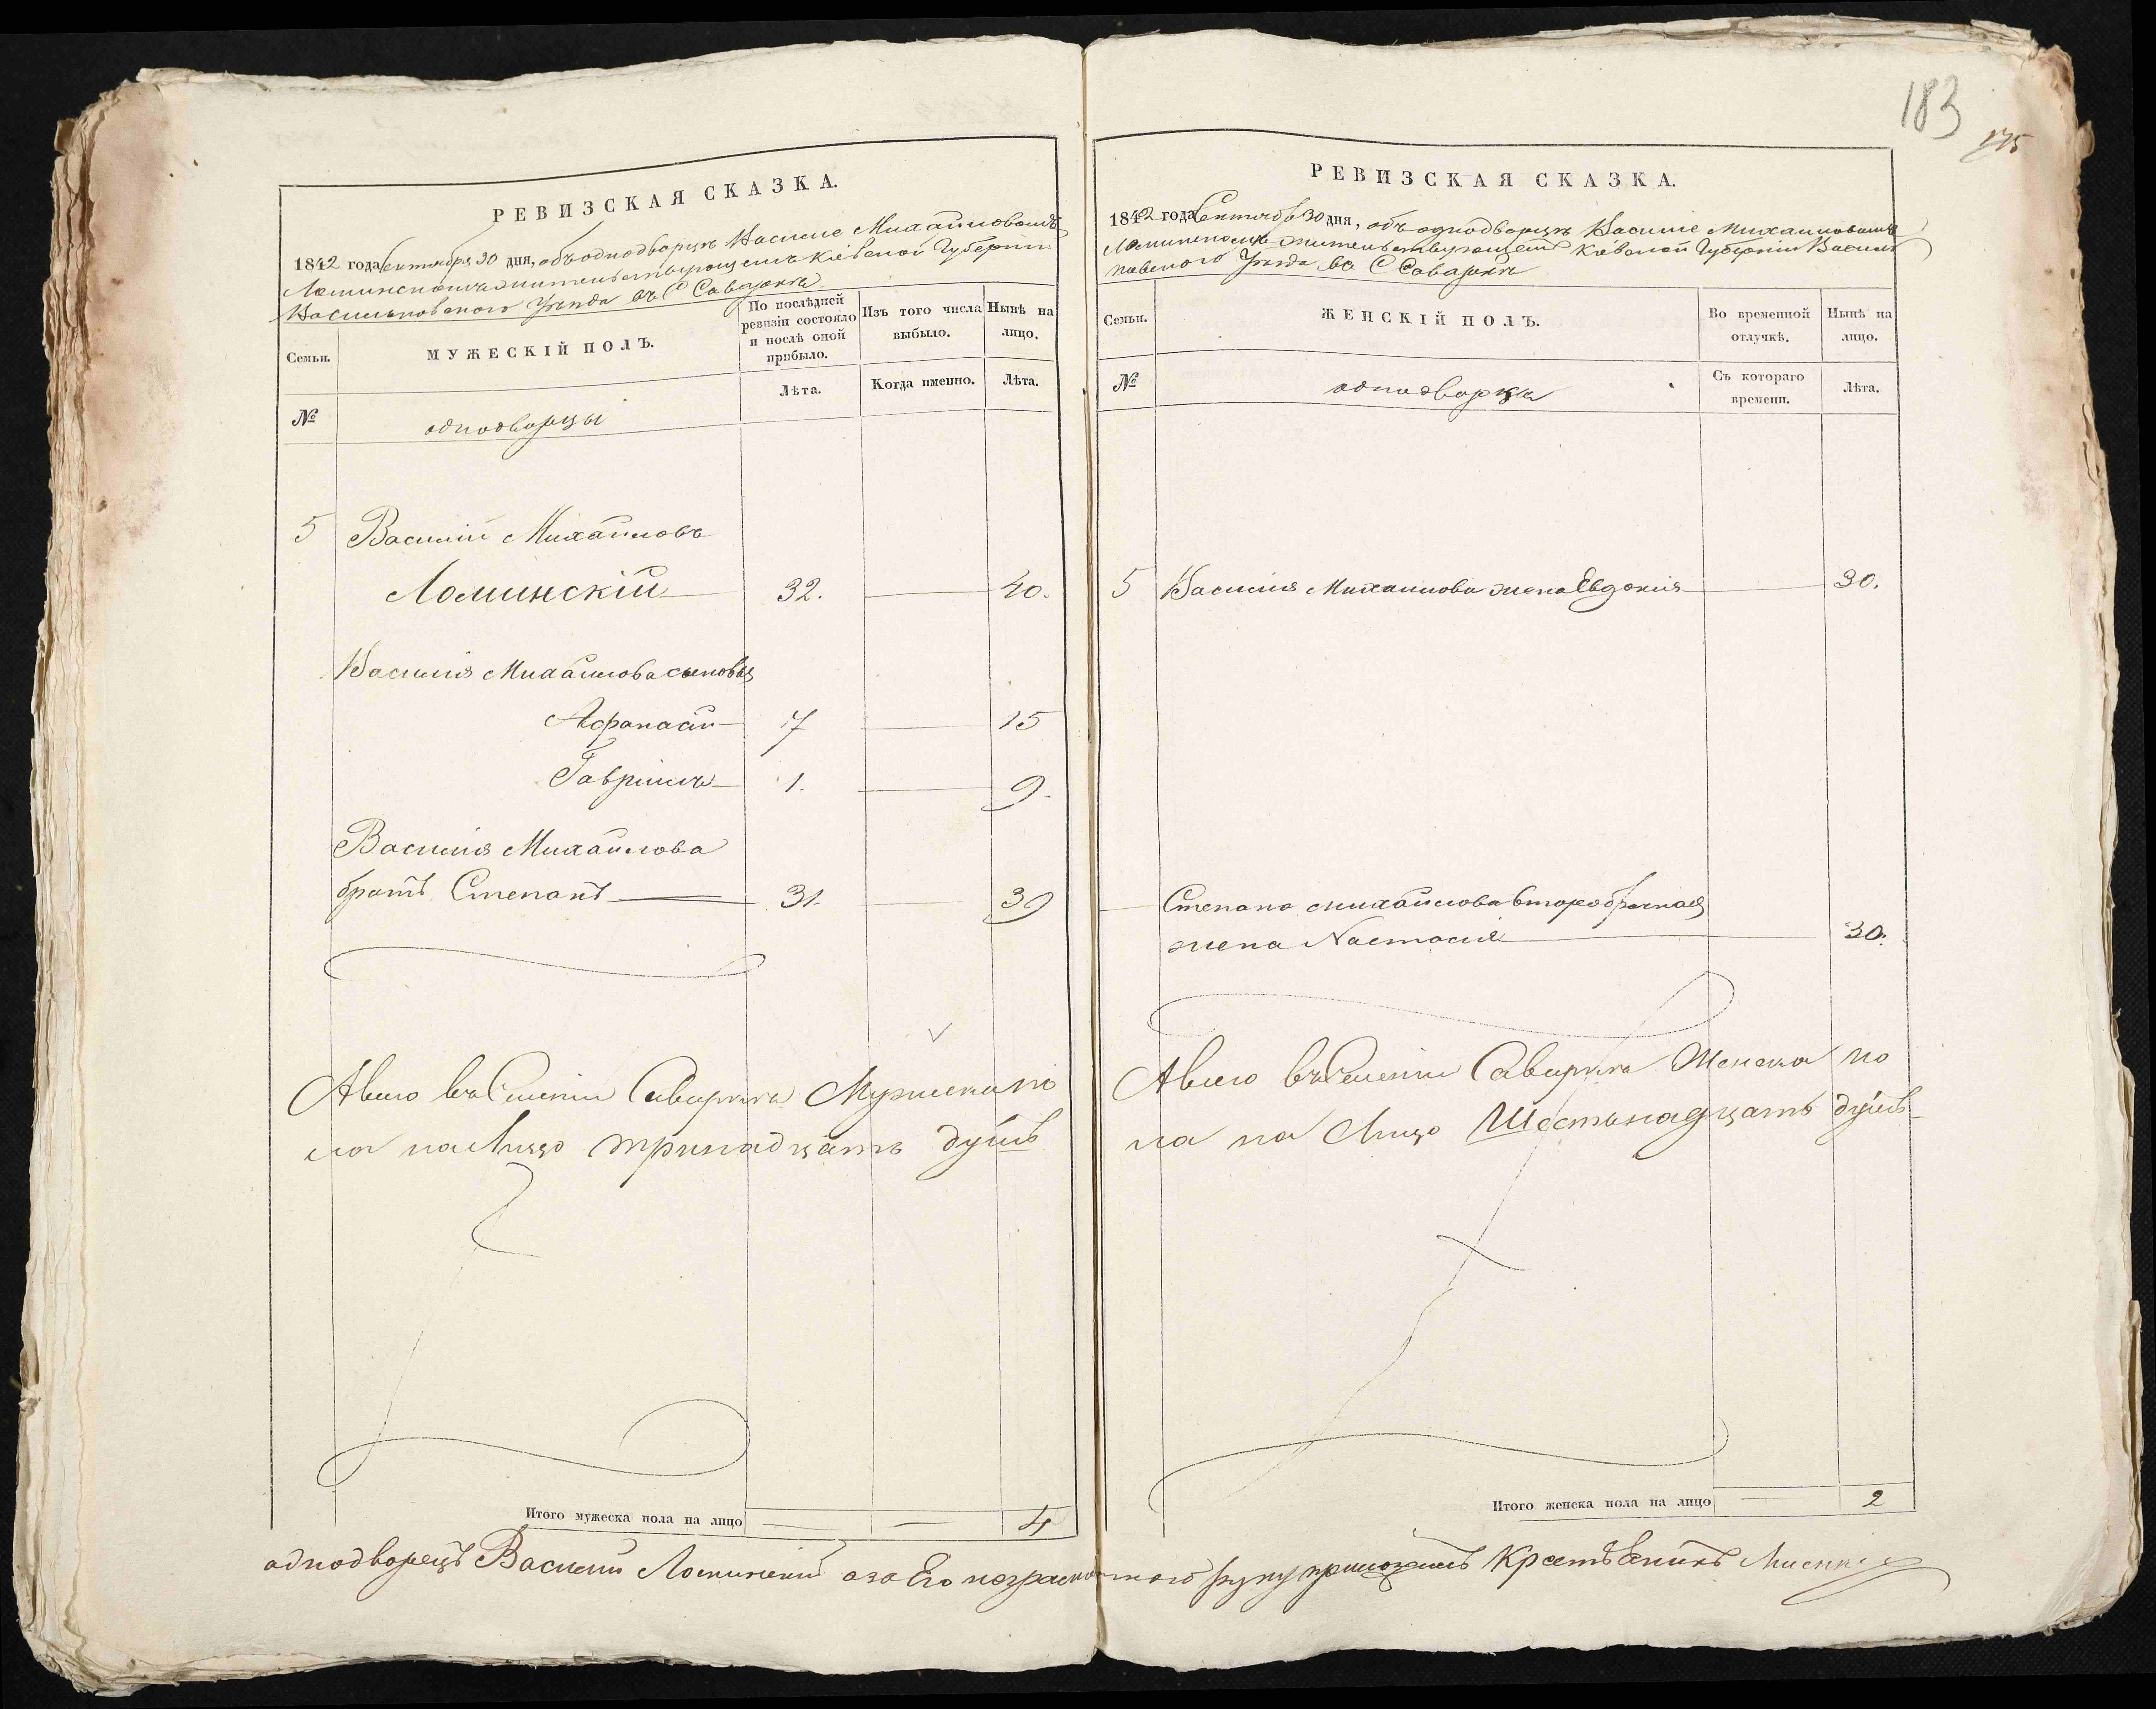 183
175
РЕВИЗСКАЯ СКАЗКА.
1842 года Сентября 30 дня, объ однодворцѣ Василіе Михайловомъ
Ломинскомъ жительствующемъ Кіевской Губерніи
Васильковского Уезда въ С Саварки
Семьи.
МУЖЕСКІЙ ПОЛЪ.
По послѣдней ревизіи состояло и послѣ оной прибыло.
Изъ того числа выбыло.
Нынѣ на лицо.
№
однодворцы
Лѣта.
Когда именно.
Лѣта.
5 Василій Михайловъ
Ломинскій 32. 40.
Василія Михайлова сыновья
Афанасій 7 15
Гавріилъ 1. 9.
Василія Михайлова
братъ Степанъ 31. 39
Авсего въ Селеніи Саварка Мужеска по
ла на Лицо тринадцать душъ
Итого мужеска пола на лицо 4
РЕВИЗСКАЯ СКАЗКА.
1842 года Сентября 30 дня, объ однодворцѣ Василіе Михайловомъ
Ломинскомъ жительствующемъ Кіевской Губерніи Василь
ковского Уезда во С Саварки
Семьи.
ЖЕНСКІЙ ПОЛЪ.
Во временной отлучкѣ.
Нынѣ на лицо.
№
однодворки
Съ котораго времени.
Лѣта.
5 Василія Михайлова жена Евдокия 30.
Степана Михайлова второбрачная
жена Настасия 30.
Авсего въ Селеніи Саварка Женска по
ла на Лицо Шестьнадцать душъ
Итого женска пола на лицо 2
однодворецъ Василий Ломинский аза Его неграмотного руку приложилъ